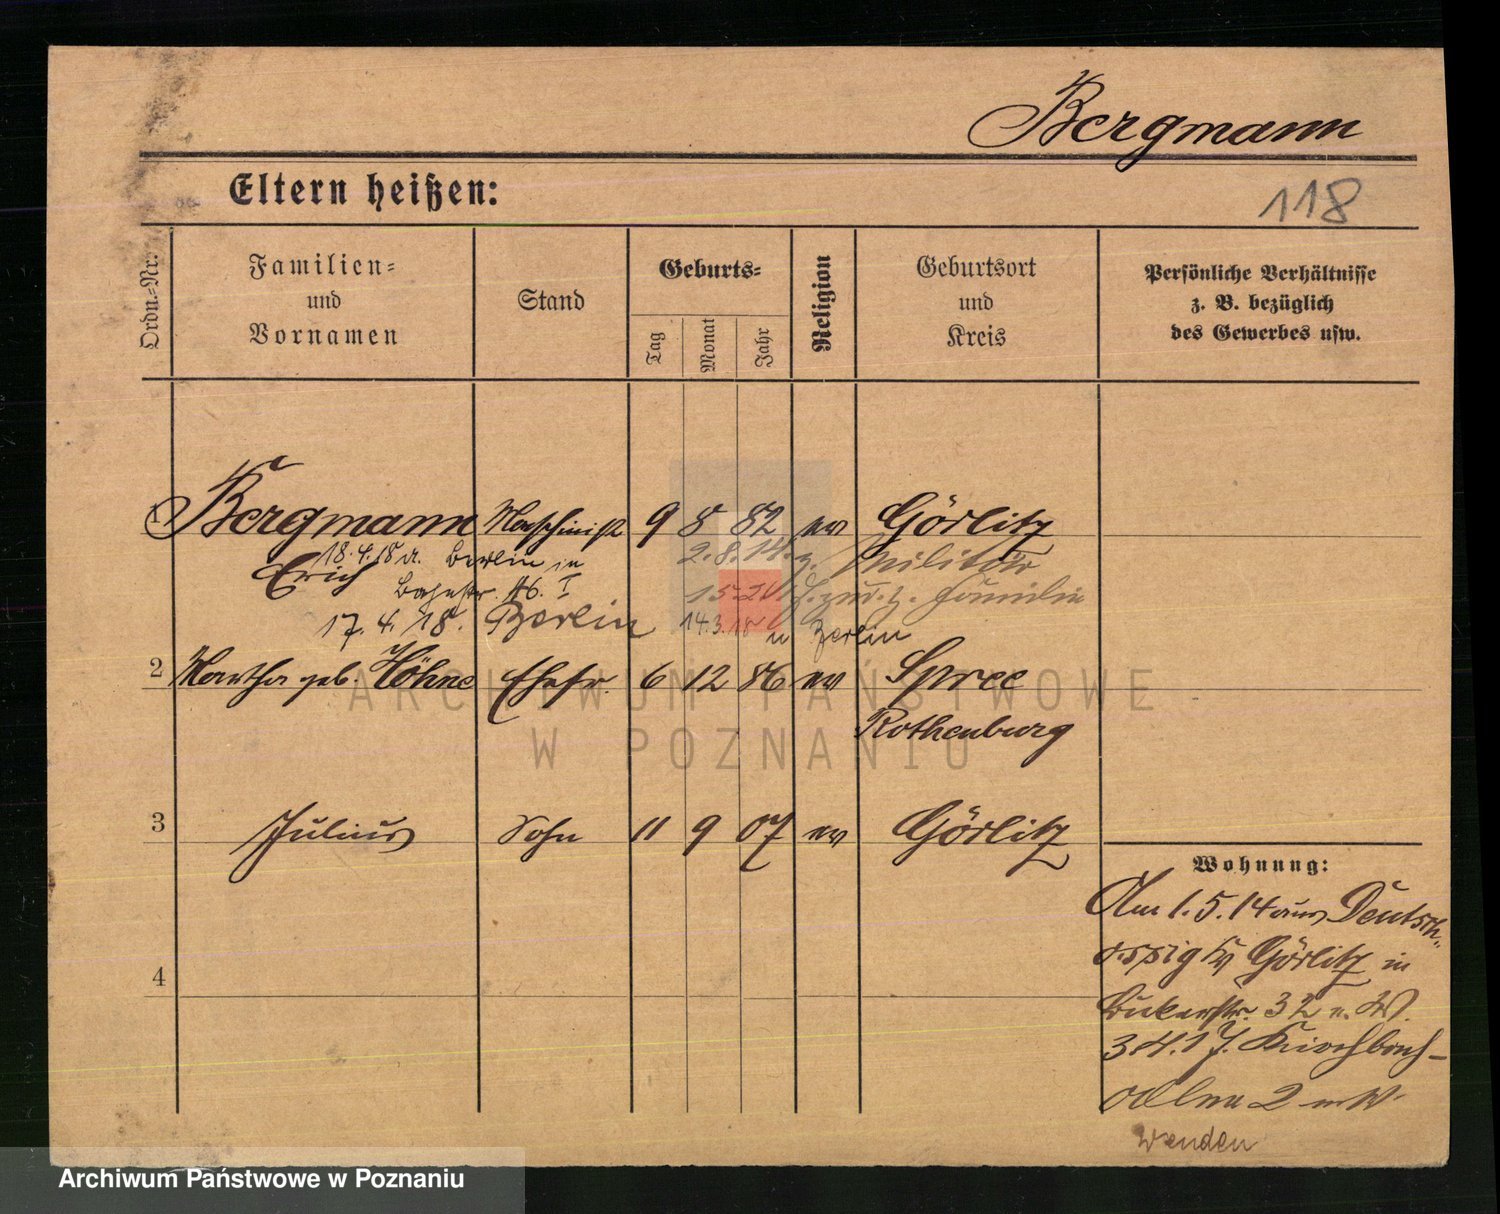 Bergmann
Eltern heißen:
118
Ordn.-Nr.
Familien-
und
Vornamen
Stand
Geburts-
Tag
Monat
Jahr
Religion
Geburtsort
und
Kreis
Persönliche Verhältnisse
z. B. bezüglich
des Gewerbes usw.
1 Bergmann Maschinist 9 8 82 ev Görlitz
18.4.18 a. Berlin in 2.8.14. z. Militär
Erich
17. 4. 18. Berlin 14.3.18 n Berlin
2 Martha geb. Höhne Ehefr. 6 12 86 ev Spree
Rothenburg
ARCHIWUM PAŃSTWOWE
W POZNANIU
3 Julius Sohn 11 9 07 ev Görlitz
4
Wohnung:
Am 1.5.14 aus Deutsch
ossig Kr Görlitz in
Bukerstr. 32 n. W.
3.4.17. Kirchbach-
allee 2 n W
wenden
Archiwum Państwowe w Poznaniu